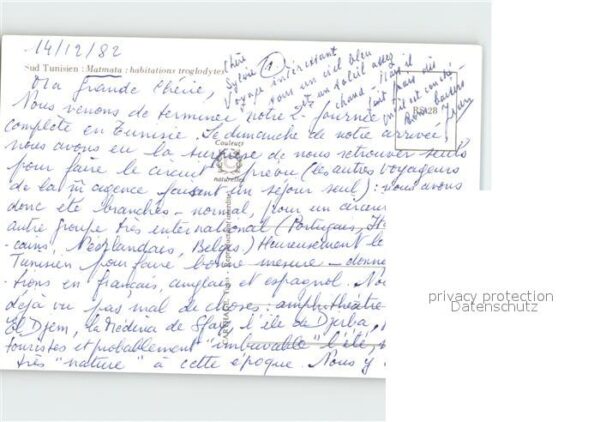 14/12/82
Sud Tunisien : Matmata : habitations troglodytes
Ma grande Chérie,
Nous venons de terminer notre 2e journée
complète en Tunisie. Le dimanche de notre arrivée,
nous avons eu la surprise de nous retrouver seuls
pour faire le circuit prévu (les autres voyageurs
de la m̂ agence faisant un séjour seul) : nous avons
donc été branchés - normal, pour un circuit
autre groupe très international (Portugais,
cains, Néerlandais, Belges) Heureusement le
Tunisien pour faire bonne mesure - donne
tions en français, anglais et espagnol. No
déjà vu pas mal de choses : amphithéâtre
El Djem, la Medina de Sfax, l'île de Djerba,
touristes et probablement "imbuvable" l'été,
très "nature" à cette époque. Nous y
Chère
Sylvie
Voyage intéressant
sous un ciel bleu
et un soleil assez
chaud - Mais il
fait frais dès
qu'il est couché -
Bons baisers
Couleurs
naturelles
Reproduction interdite
RS 28
privacy protection
Datenschutz